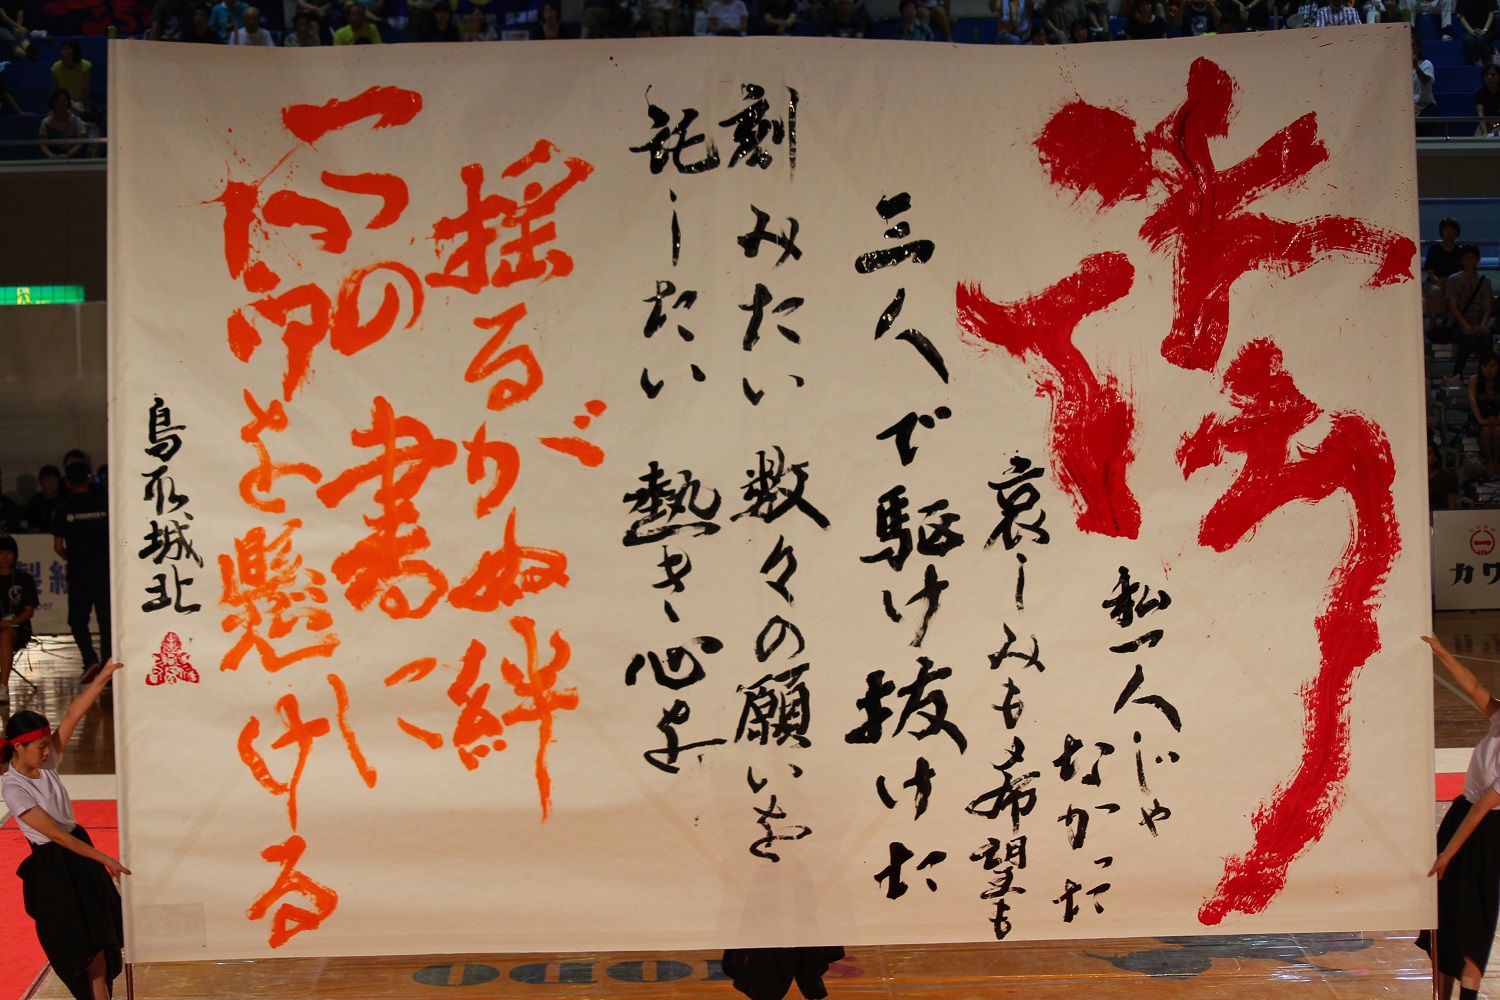 誇
私一人じゃ
なかった
哀しみも希望も
三人で駆け抜けた
刻みたい 数々の願いを
託したい 熱き心を
揺るがぬ絆
一つの書に
命を懸ける
鳥取城北
カワ